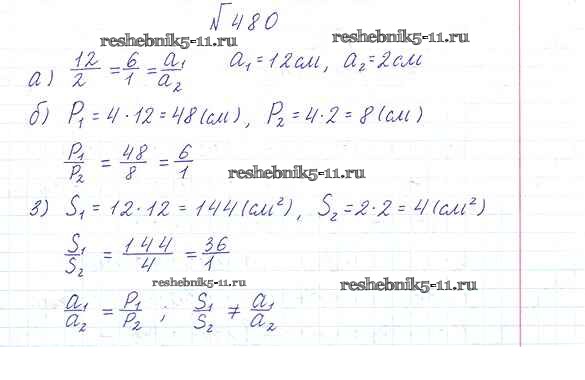 √480
reshebnik5-11.ru reshebnik5-11.ru
а) 12/2 = 6/1 = a₁/a₂ a₁ = 12 см, a₂ = 2 см
б) P₁ = 4 · 12 = 48 (см), P₂ = 4 · 2 = 8 (см)
P₁/P₂ = 48/8 = 6/1
reshebnik5-11.ru
з) S₁ = 12 · 12 = 144 (см²), S₂ = 2 · 2 = 4 (см²)
S₁/S₂ = 144/4 = 36/1
reshebnik5-11.ru reshebnik5-11.ru
a₁/a₂ = P₁/P₂ ; S₁/S₂ ≠ a₁/a₂